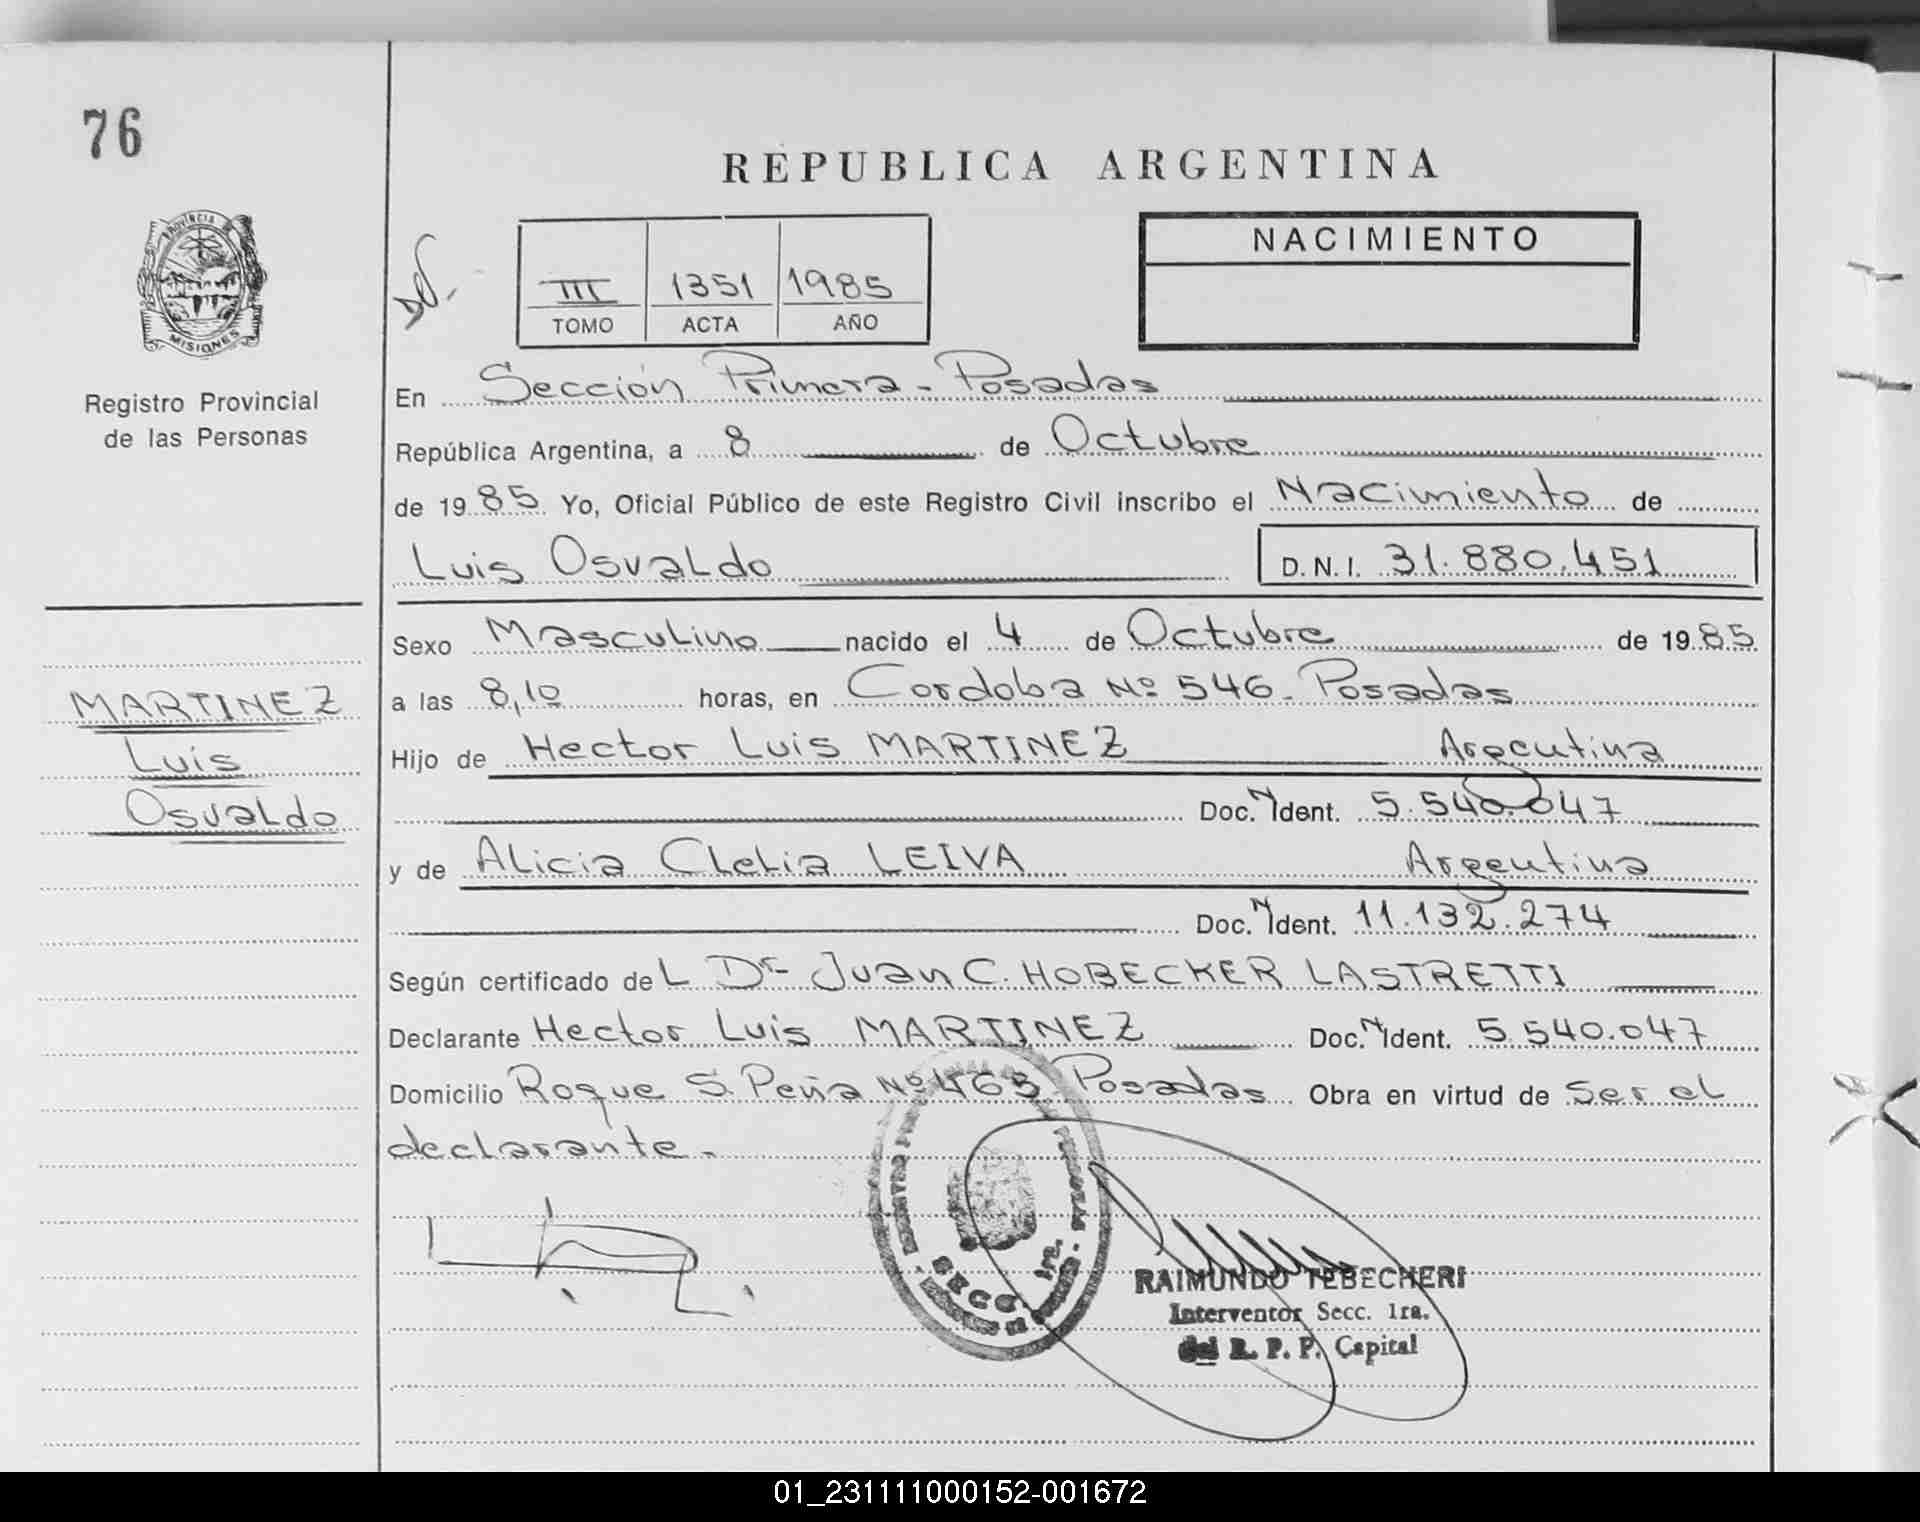 76
REPUBLICA ARGENTINA
PROVINCIA
MISIONES
Registro Provincial
de las Personas
III 1351 1985
TOMO ACTA AÑO
NACIMIENTO
En Sección Primera - Posadas
República Argentina, a 8 de Octubre
de 1985 Yo, Oficial Público de este Registro Civil inscribo el Nacimiento de
Luis Osvaldo D.N.I. 31.880.451
Sexo Masculino nacido el 4 de Octubre de 1985
a las 8,10 horas, en Cordoba Nº 546 - Posadas
MARTINEZ
Luis
Osvaldo
Hijo de Hector Luis MARTINEZ Argentina
Doc. N Ident. 5.540.047
y de Alicia Clelia LEIVA Argentina
Doc. N Ident. 11.132.274
Según certificado de L Dr Juan C. HOBECKER LASTRETTI
Declarante Hector Luis MARTINEZ Doc. N Ident. 5.540.047
Domicilio Roque S. Peña Nº 463 Posadas Obra en virtud de ser el
declarante.-
SECC. 1ra.
RAIMUNDO TEBECHERI
Interventor Secc. 1ra.
del R. P. P. Capital
01_231111000152-001672